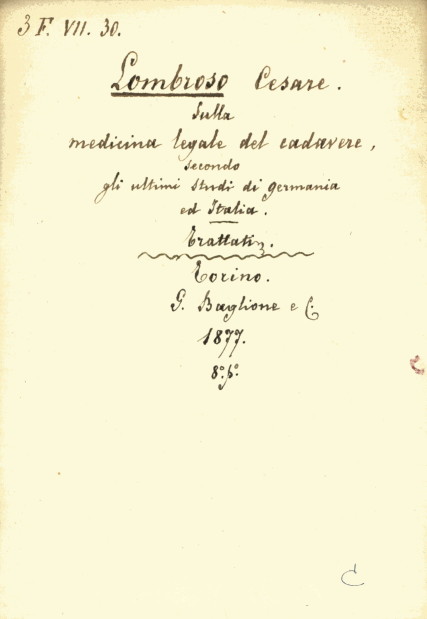 3 F. VII. 30.
Lombroso Cesare.
Sulla
medicina legale del cadavere,
secondo
gli ultimi studi di germania
ed Italia.
Torino.
G. Baglione e C.
1877.
8.° p.°
C